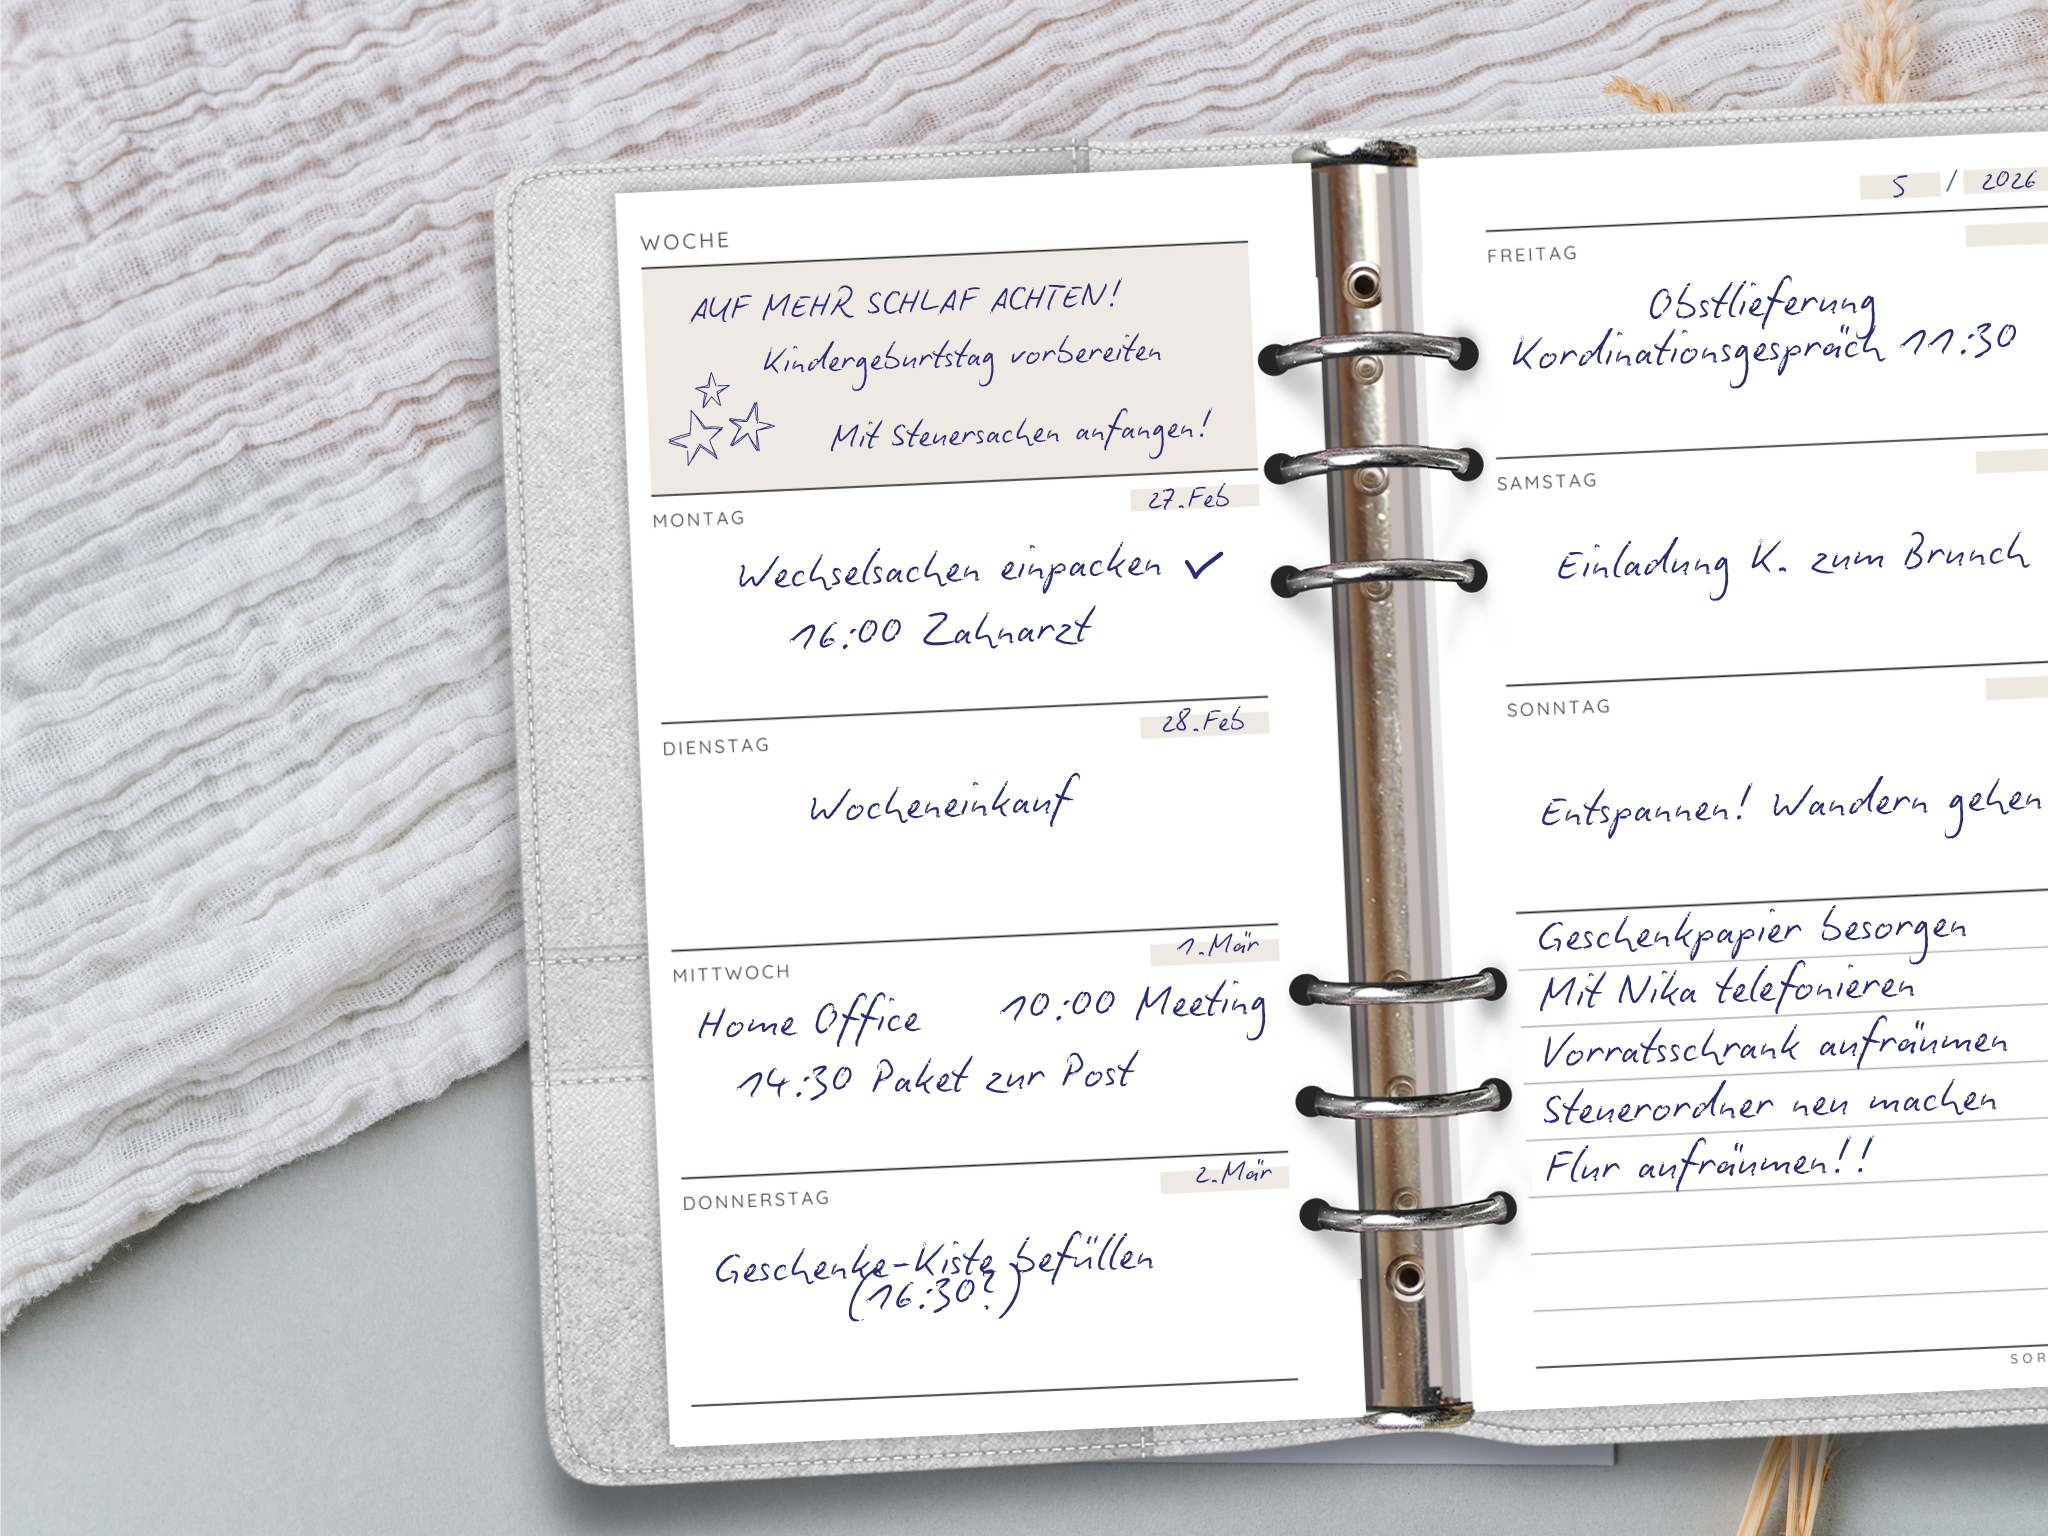 WOCHE
AUF MEHR SCHLAF ACHTEN!
Kindergeburtstag vorbereiten
Mit Steuersachen anfangen!
MONTAG
27.Feb
Wechselsachen einpacken ✓
16:00 Zahnarzt
DIENSTAG
28.Feb
Wocheneinkauf
MITTWOCH
1.Mär
Home Office 10:00 Meeting
14:30 Paket zur Post
DONNERSTAG
2.Mär
Geschenke-Kiste befüllen
(16:30?)
5 / 2026
FREITAG
Obstlieferung
Kordinationsgespräch 11:30
SAMSTAG
Einladung K. zum Brunch
SONNTAG
Entspannen! Wandern gehen
Geschenkpapier besorgen
Mit Nika telefonieren
Vorratsschrank aufräumen
Steuerordner neu machen
Flur aufräumen!!
SOR